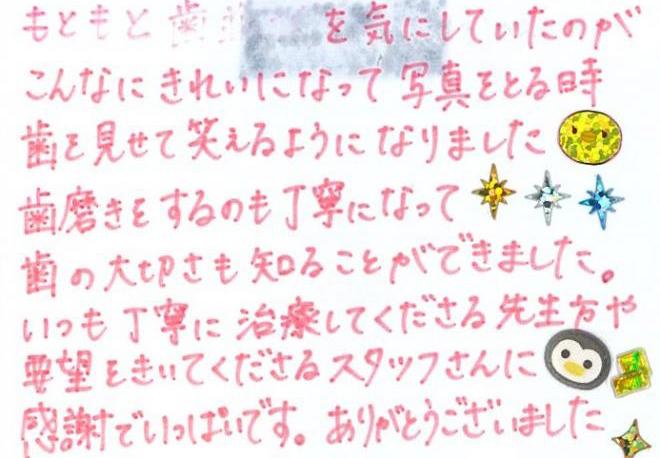 もともと 歯 を 気にしていたのが
こんなに きれいになって 写真をとる時
歯を見せて笑えるようになりました
歯磨きをするのも丁寧になって
歯の大切さも知ることができました。
いつも丁寧に治療してくださる先生方や
要望をきいてくださるスタッフさんに
感謝でいっぱいです。ありがとうございました